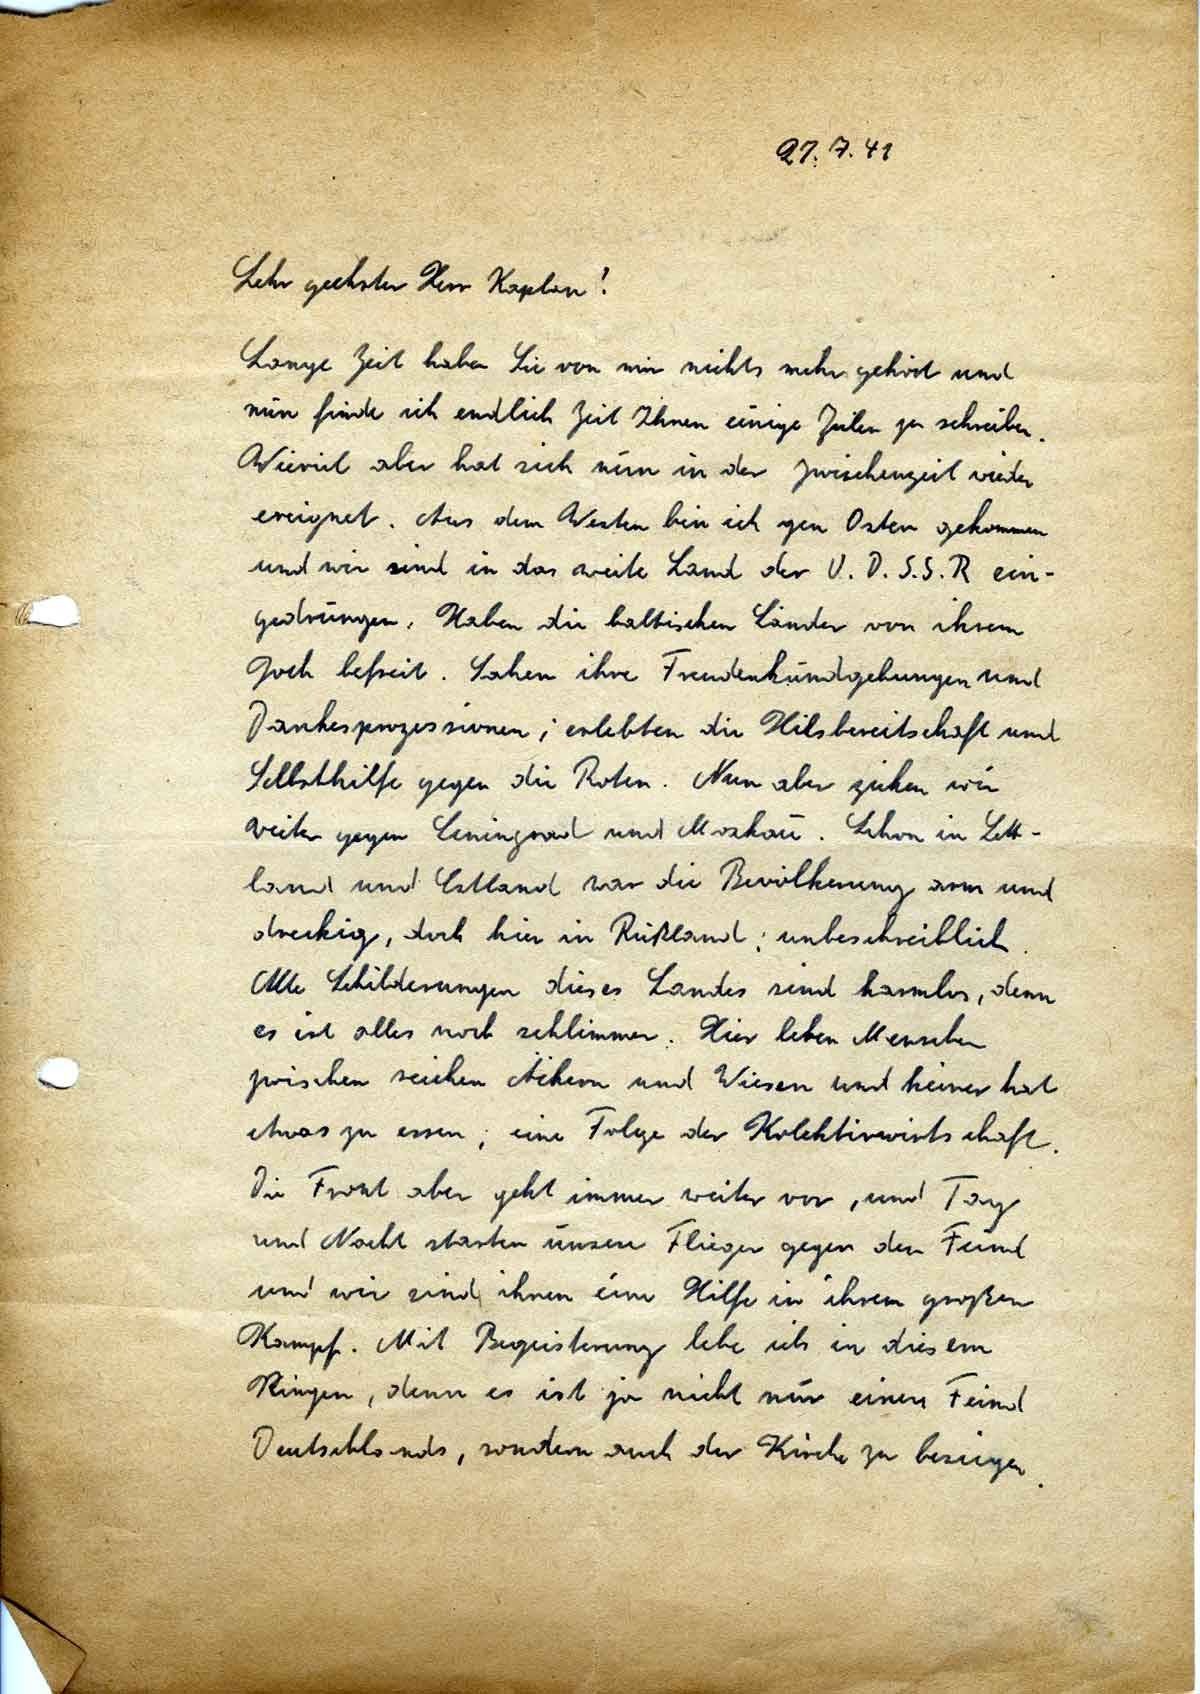 27.7.41
Sehr geehrter Herr Kaplan!
Lange Zeit haben Sie von mir nichts mehr gehört und
nun finde ich endlich Zeit Ihnen einige Zeilen zu schreiben.
Wieviel aber hat sich nun in der Zwischenzeit wieder
ereignet. Aus dem Westen bin ich gen Osten gekommen
und wir sind in das weite Land der U.D.S.S.R ein-
gedrungen. Haben die baltischen Länder von ihrem
Joch befreit. Sahen ihre Freudenkundgebungen und
Dankesprozessionen; erlebten die Hilsbereitschaft und
Selbsthilfe gegen die Roten. Nun aber ziehen wir
weiter gegen Leningrad und Moskau. Schon in Lett-
land und Estland war die Bevölkerung arm und
dreckig, doch hier in Rußland: unbeschreiblich.
Alle Schilderungen dieses Landes sind harmlos, denn
es ist alles noch schlimmer. Hier leben Menschen
zwischen reichen Äckern und Wiesen und keiner hat
etwas zu essen; eine Folge der Kolektivwirtschaft.
Die Front aber geht immer weiter vor, und Tag
und Nacht starten unsere Flieger gegen den Feind
und wir sind ihnen eine Hilfe in ihrem großen
Kampf. Mit Begeisterung lebe ich in diesem
Ringen, denn es ist ja nicht nur einen Feind
Deutschlands, sondern auch der Kirche zu besiegen.